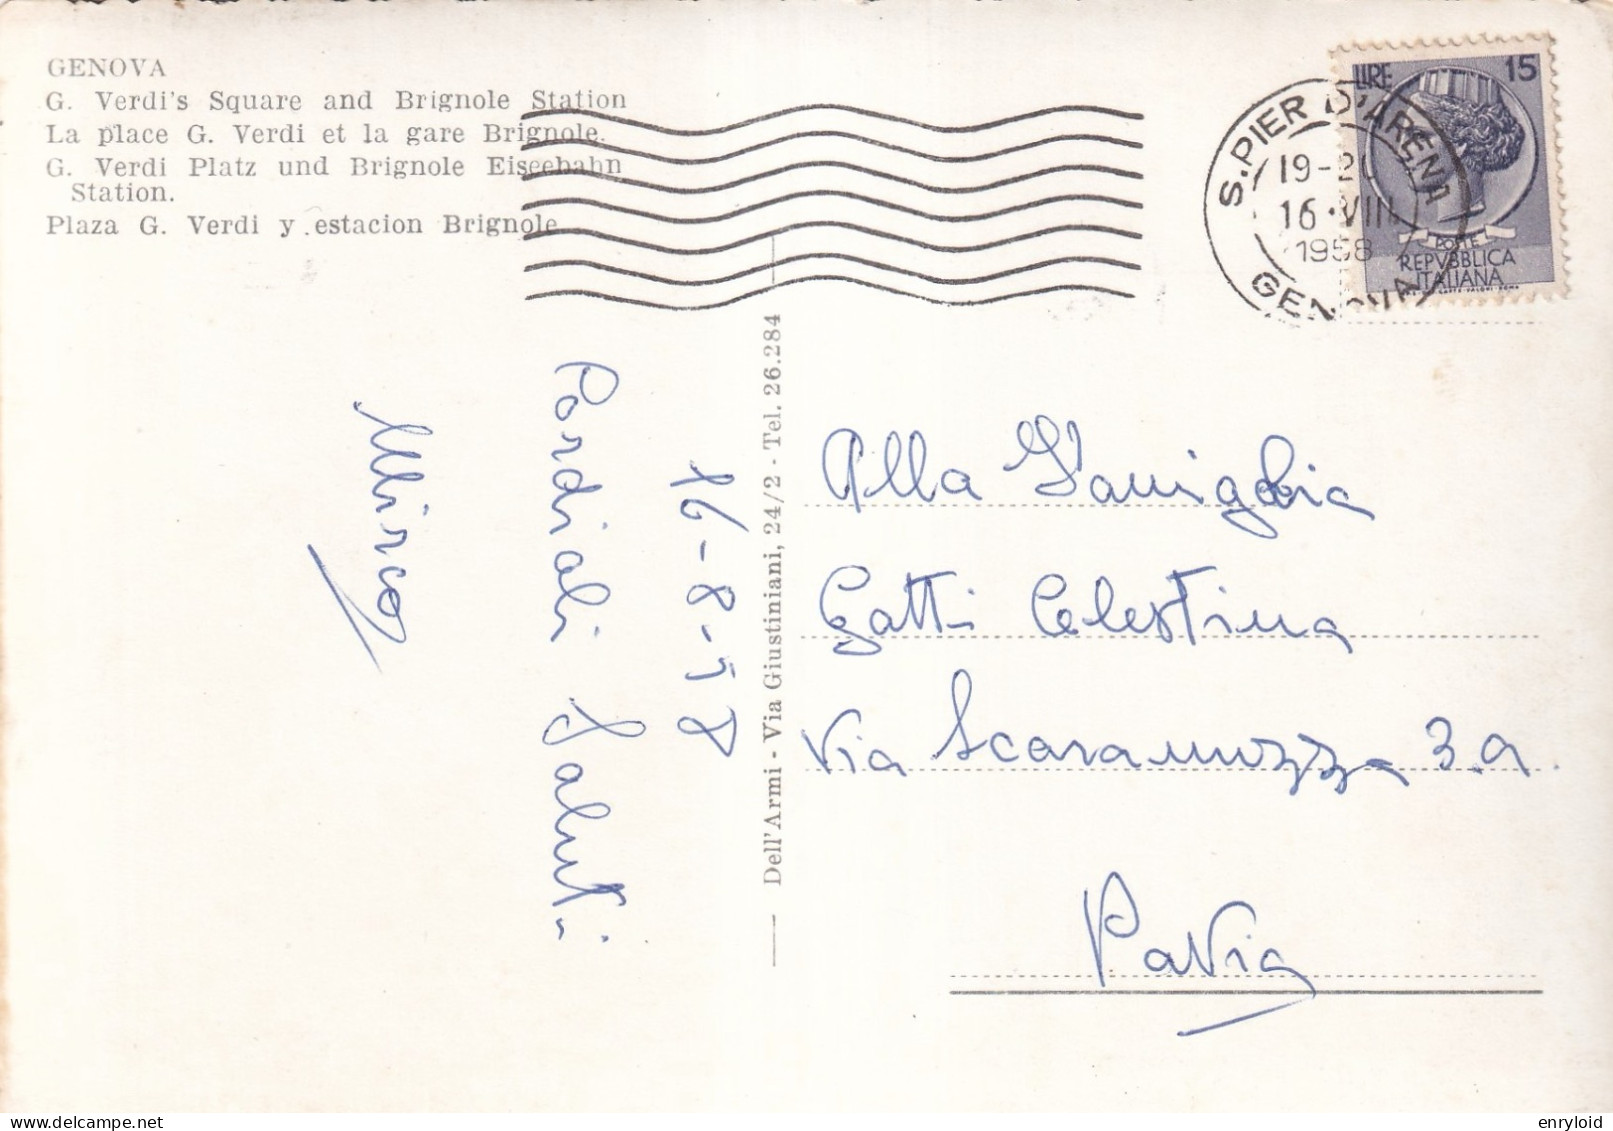 GENOVA
G. Verdi's Square and Brignole Station
La place G. Verdi et la gare Brignole.
G. Verdi Platz und Brignole Eiseebahn
Station.
Plaza G. Verdi y estacion Brignole
S. PIER D'ARENA
19-20
16·VIII
1958
GENOVA
LIRE 15
POSTE
REPVBBLICA
ITALIANA
Dell'Armi - Via Giustiniani, 24/2 - Tel. 26.284
16-8-58
Cordiali Saluti
Mirco
Alla Famiglia
Gatti Celestina
Via Scaramuzza 3.a.
Pavia
enryloid